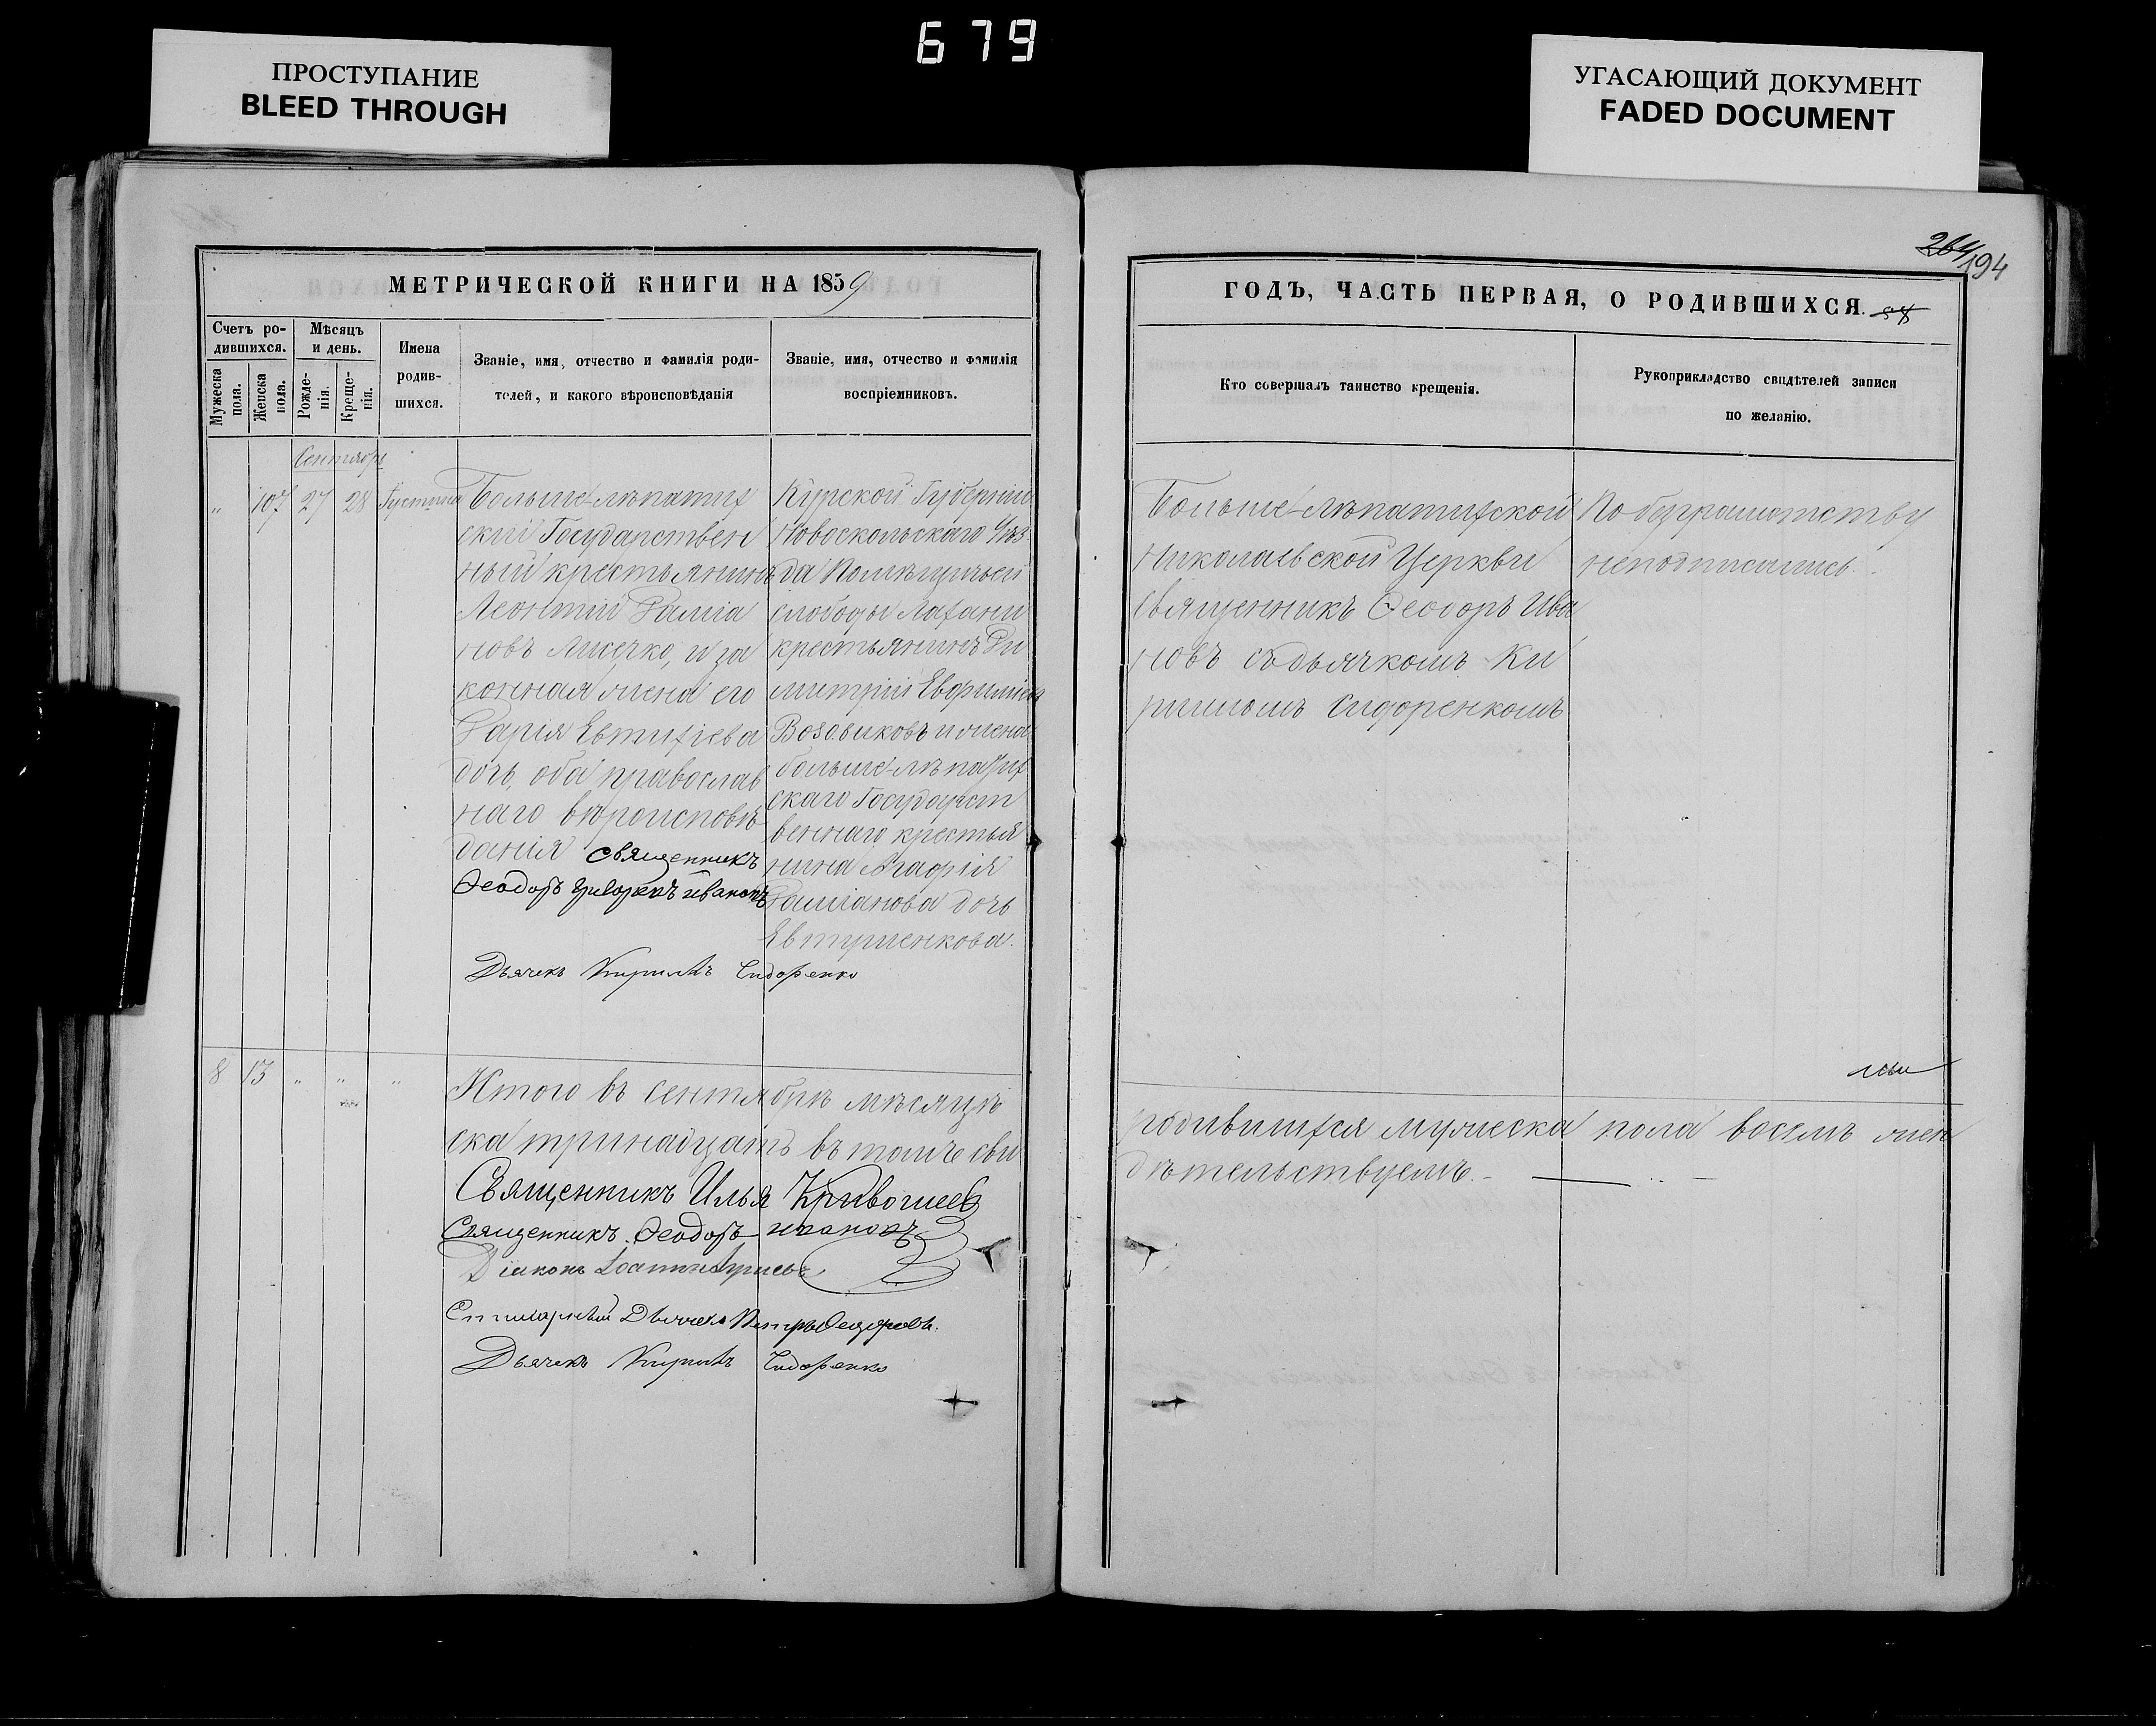 679
ПРОСТУПАНИЕ
BLEED THROUGH
УГАСАЮЩИЙ ДОКУМЕНТ
FADED DOCUMENT
МЕТРИЧЕСКОЙ КНИГИ НА 1859
Счетъ ро-
дившихся.
Мужеска
пола.
Женска
пола.
Мѣсяцъ
и день.
Рожде-
нія.
Креще-
нія.
Имена
родив-
шихся.
Званіе, имя, отчество и фамилія роди-
телей, и какого вѣроисповѣданія
Званіе, имя, отчество и фамилія
воспріемниковъ.
Сентябрь
" 107 27 28 Густина
Больше-лѣпатих
скій Государствен
ный крестьянинъ
Леонтій Даміа
новъ Лисечко, и за
конная жена его
Дарія Евтихіева
дочь, оба православ
наго вѣроисповѣ
данія священникъ
Ѳеодоръ Ивановъ
Курской Губерніи
Новоскольскаго Уѣз
да
слободы
крестьянинъ Ди
митрій Евфиміевъ
Возовиковъ и жена
больше-лѣпатих
скаго Государст
веннаго крестья
нина Агафія
Даміанова дочь
Евтушенкова.
Дьячекъ Кириллъ Сидоренко
8 13 " " "
Итого въ сентябрѣ мѣсяцѣ
ска тринадцать въ томъ сви
Священникъ Илья Кривошеев
Священникъ Ѳеодоръ Ивановъ
Діаконъ Іоаннъ
Дьячекъ Петръ Ѳедоровъ.
Дьячекъ Кириллъ Сидоренко
264 194
ГОДЪ, ЧАСТЬ ПЕРВАЯ, О РОДИВШИХСЯ. 58
Кто совершалъ таинство крещенія.
Рукоприкладство свидѣтелей записи
по желанію.
Больше-лѣпатихской
Николаевской Церкви
священникъ Ѳеодоръ Ива
новъ съ дьячкомъ Ки
рилломъ Сидоренкомъ
По безграмотству
неподписались.
родившихся мужеска пола восемь жен
дѣтельствуемъ.